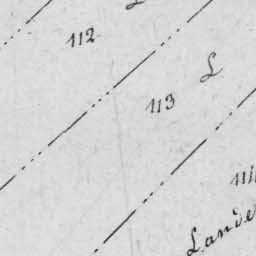 112
L
113
Lande